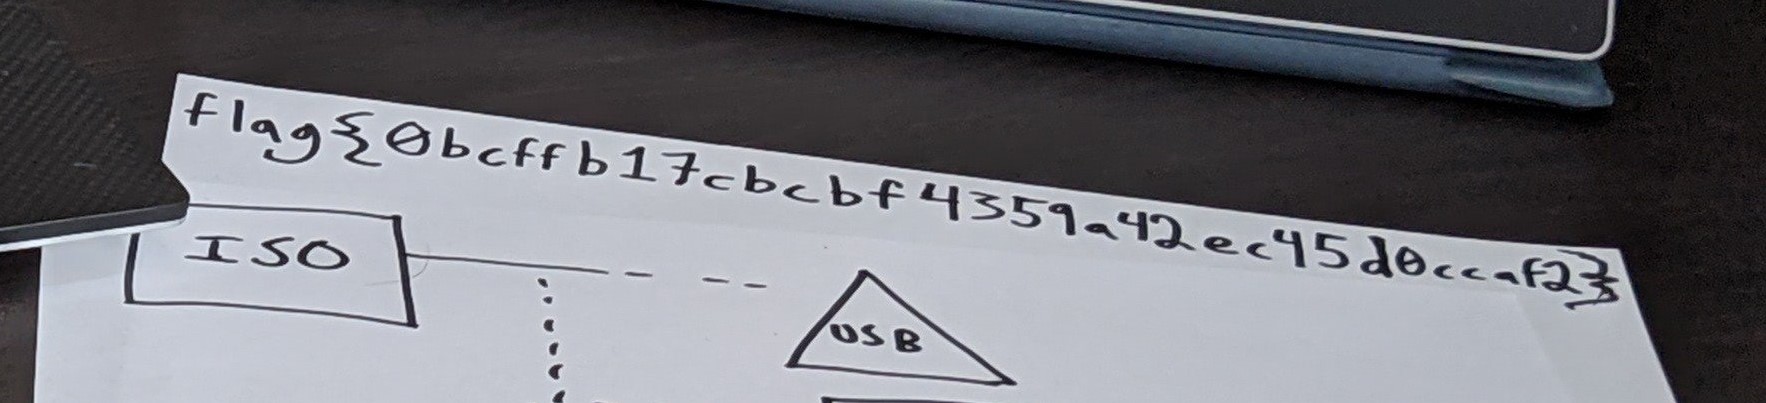 flag{0bcffb17cbcbf4359a42ec45d0ccaf2}
ISO
USB